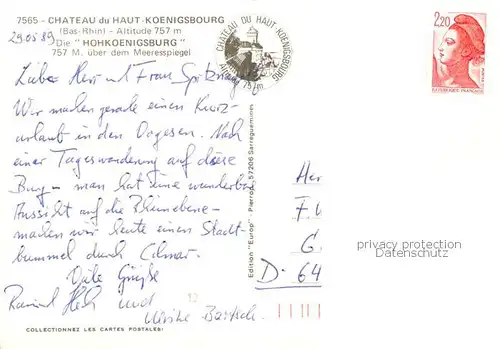 7565 - CHATEAU du HAUT-KOENIGSBOURG
(Bas-Rhin) - Altitude 757 m
Die "HOHKOENIGSBURG"
757 M. über dem Meeresspiegel
29.05.89
CHATEAU DU HAUT-KOENIGSBOURG
757 m.
2,20
REPUBLIQUE FRANÇAISE
Liebe Herr und Frau
Wir machen gerade einen Kurz-
urlaub in den Vogesen. Nach
einer Tageswanderung auf diese
Burg - man hat eine wunderbare
Aussicht auf die Rheinebene -
machen wir heute einen Stadt-
bummel durch Colmar.
Viele Grüße
und
Ulrike
Her
F.
G.
D-64
Edition "Europ" Pierron, 57206 Sarreguemines
privacy protection
Datenschutz
12
COLLECTIONNEZ LES CARTES POSTALES!